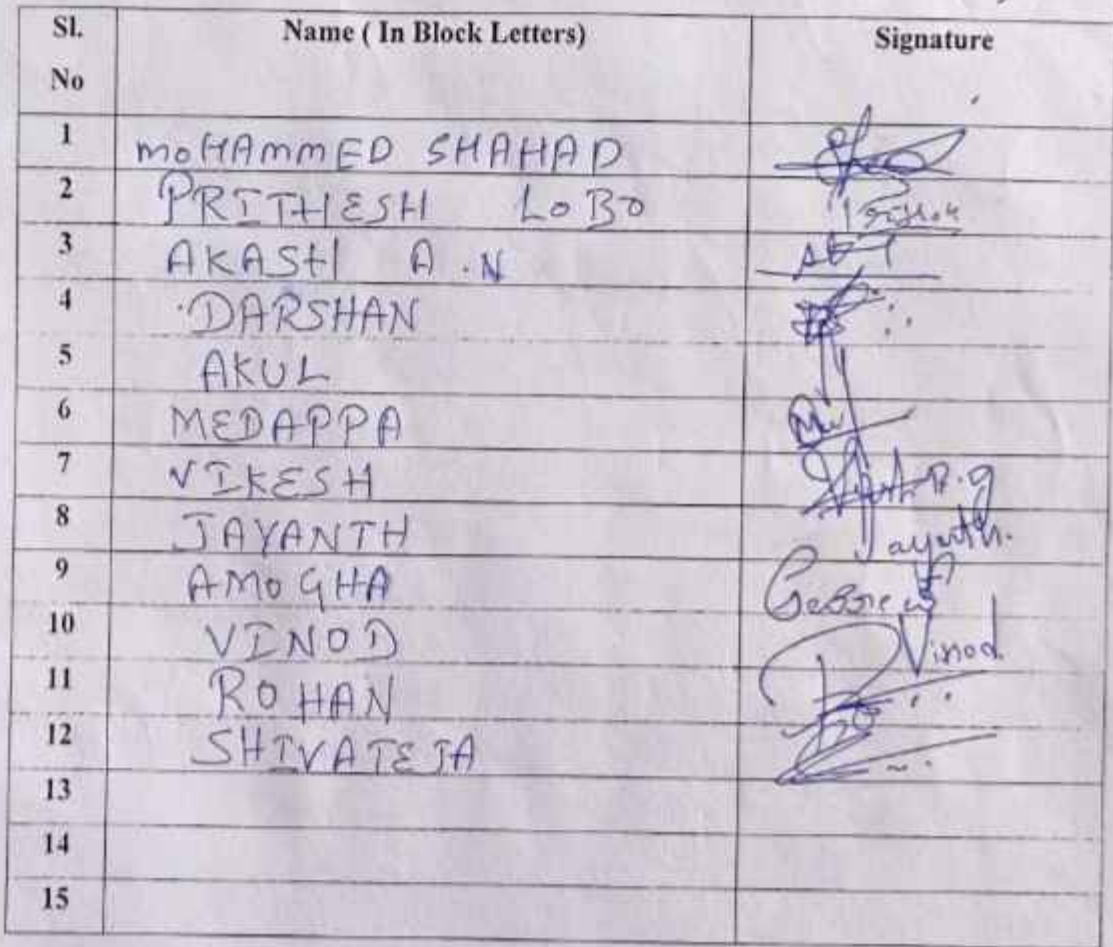 Sl. No Name ( In Block Letters) Signature
1 MOHAMMED SHAHAD
2 PRITHESH LOBO
3 AKASH A.N
4 DARSHAN
5 AKUL
6 MEDAPPA
7 VIKESH
8 JAYANTH Jayanth.
9 AMOGHA
10 VINOD Vinod
11 ROHAN
12 SHIVATEJA
13
14
15